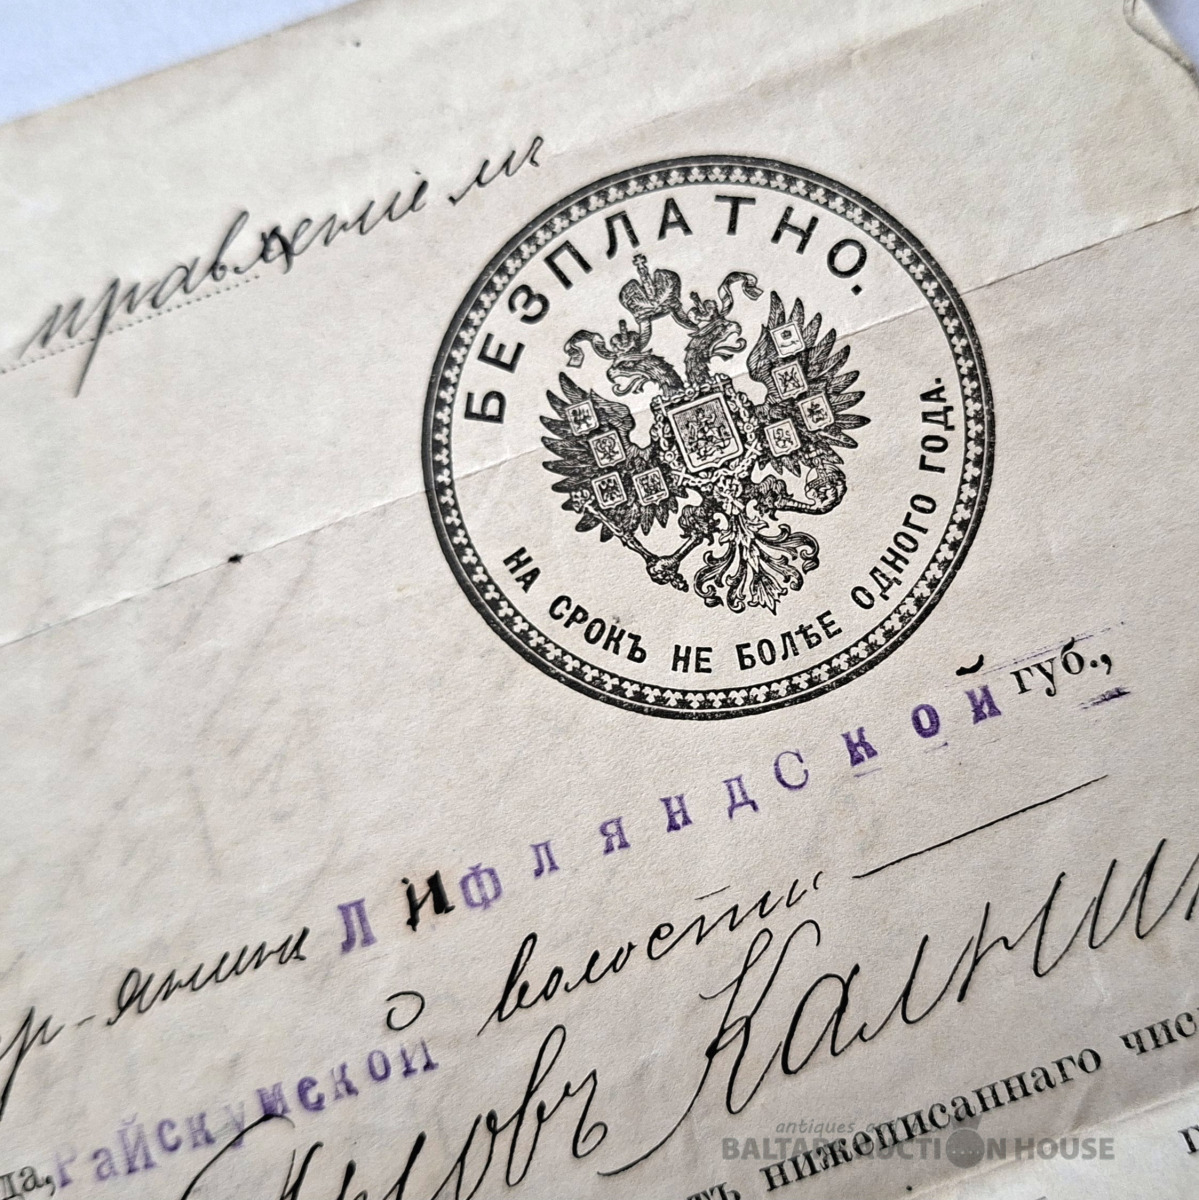 правленiеми
БЕЗПЛАТНО.
НА СРОКЪ НЕ БОЛѢЕ ОДНОГО ГОДА.
ЛИФЛЯНДСКОЙ губ.,
да, Райскумской волости
Калнин
нижеписаннаго чис
antiques art
BALTAR AUCTION HOUSE